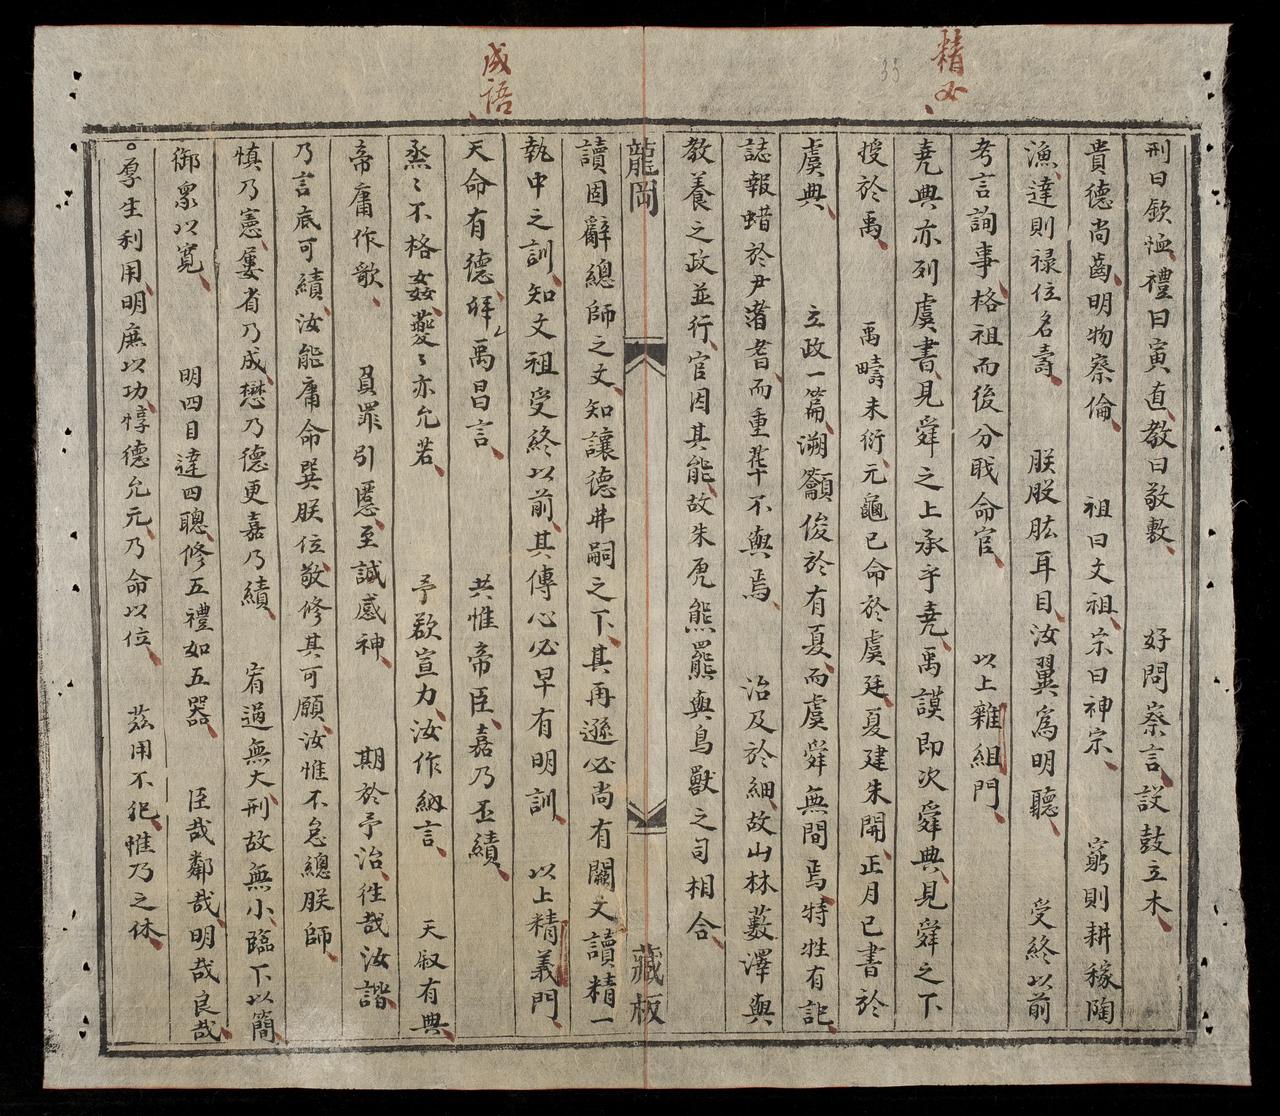 精義
35
刑曰欽恤禮曰寅直教曰敬敷　好問察言設鼓立木
貴德尚齒明物察倫　祖曰文祖宗曰神宗　窮則耕稼陶
漁達則祿位名壽　朕股肱耳目汝翼為明聽　受終以前
考言詢事格祖而後分職命官　以上雜組門
堯典亦列虞書見舜之上承乎堯禹謨即次舜典見舜之下
授於禹　禹疇未衍元龜已命於虞廷夏建朱開正月已書於
虞典　立政一篇溯籲俊於有夏而虞舜無間焉特牲有記
誌報蜡於尹耆而重華不與焉　治及於細故山林藪澤與
教養之政並行官因其能故朱虎熊羆與鳥獸之司相合
龍岡　藏板
讀固辭總師之文知讓德弗嗣之下其再遜必尚有闕文讀精一
執中之訓知文祖受終以前其傳心必早有明訓　以上精義門
成語
天命有德拜禹昌言　共惟帝臣嘉乃丕績
烝〻不格姦夔〻亦允若　予欲宣力汝作納言　天叙有典
帝庸作歌　負罪引慝至諴感神　期於予治徃哉汝諧
乃言底可績汝能庸命巽朕位敬修其可願汝惟不怠總朕師
慎乃憲屢省乃成懋乃德更嘉乃績　宥過無大刑故無小臨下以簡
御眾以寬　明四目達四聰修五禮如五器　臣哉鄰哉明哉良哉
厚生利用明庶以功惇德允元乃命以位　茲用不犯惟乃之休